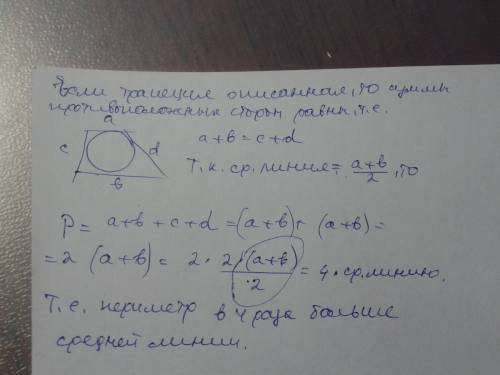 Если трапеция описанная, то суммы
противоположных сторон равны, т.е.
a
a+b = c+d
c
d
Т.к. ср. линия = \frac{a+b}{2}, то
b
P = a+b + c+d = (a+b) + (a+b) =
= 2 (a+b) = 2 · \frac{2·(a+b)}{·2} = 4 · ср. линию.
Т.е. периметр в 4 раза больше
средней линии.